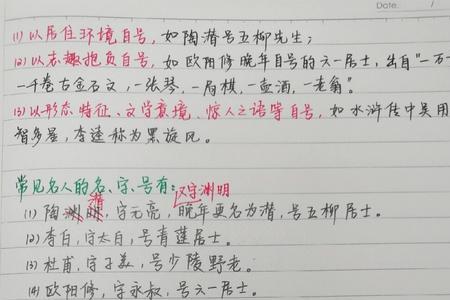 Date. /
(1) 以居住环境自号,如陶潜号五柳先生;
(2) 以志趣抱负自号,如欧阳修晚年自号的六一居士,出自“一万
一千卷古金石文,一张琴,一局棋,一壶酒,一老翁”。
(3) 以形态特征、文学意境、惊人之语等自号,如水浒传中吴用
智多星,李逵称为黑旋风。
常见名人的名、字、号有: 又字渊明
潜
(1) 陶渊明,字元亮,晚年更名为潜,号五柳居士。
(2) 李白,字太白,号青莲居士。
(3) 杜甫,字子美,号少陵野老。
(4) 欧阳修,字永叔,号六一居士。